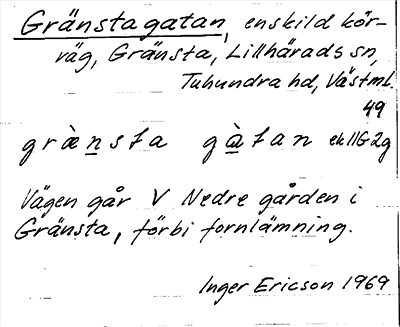 Gränstagatan, enskild kör-
väg, Gränsta, Lillhärads sn,
Tuhundra hd, Västml.
49
grànsta gàtan ek11G2g
Vägen går V Nedre gården i
Gränsta, förbi fornlämning.
Inger Ericson 1969